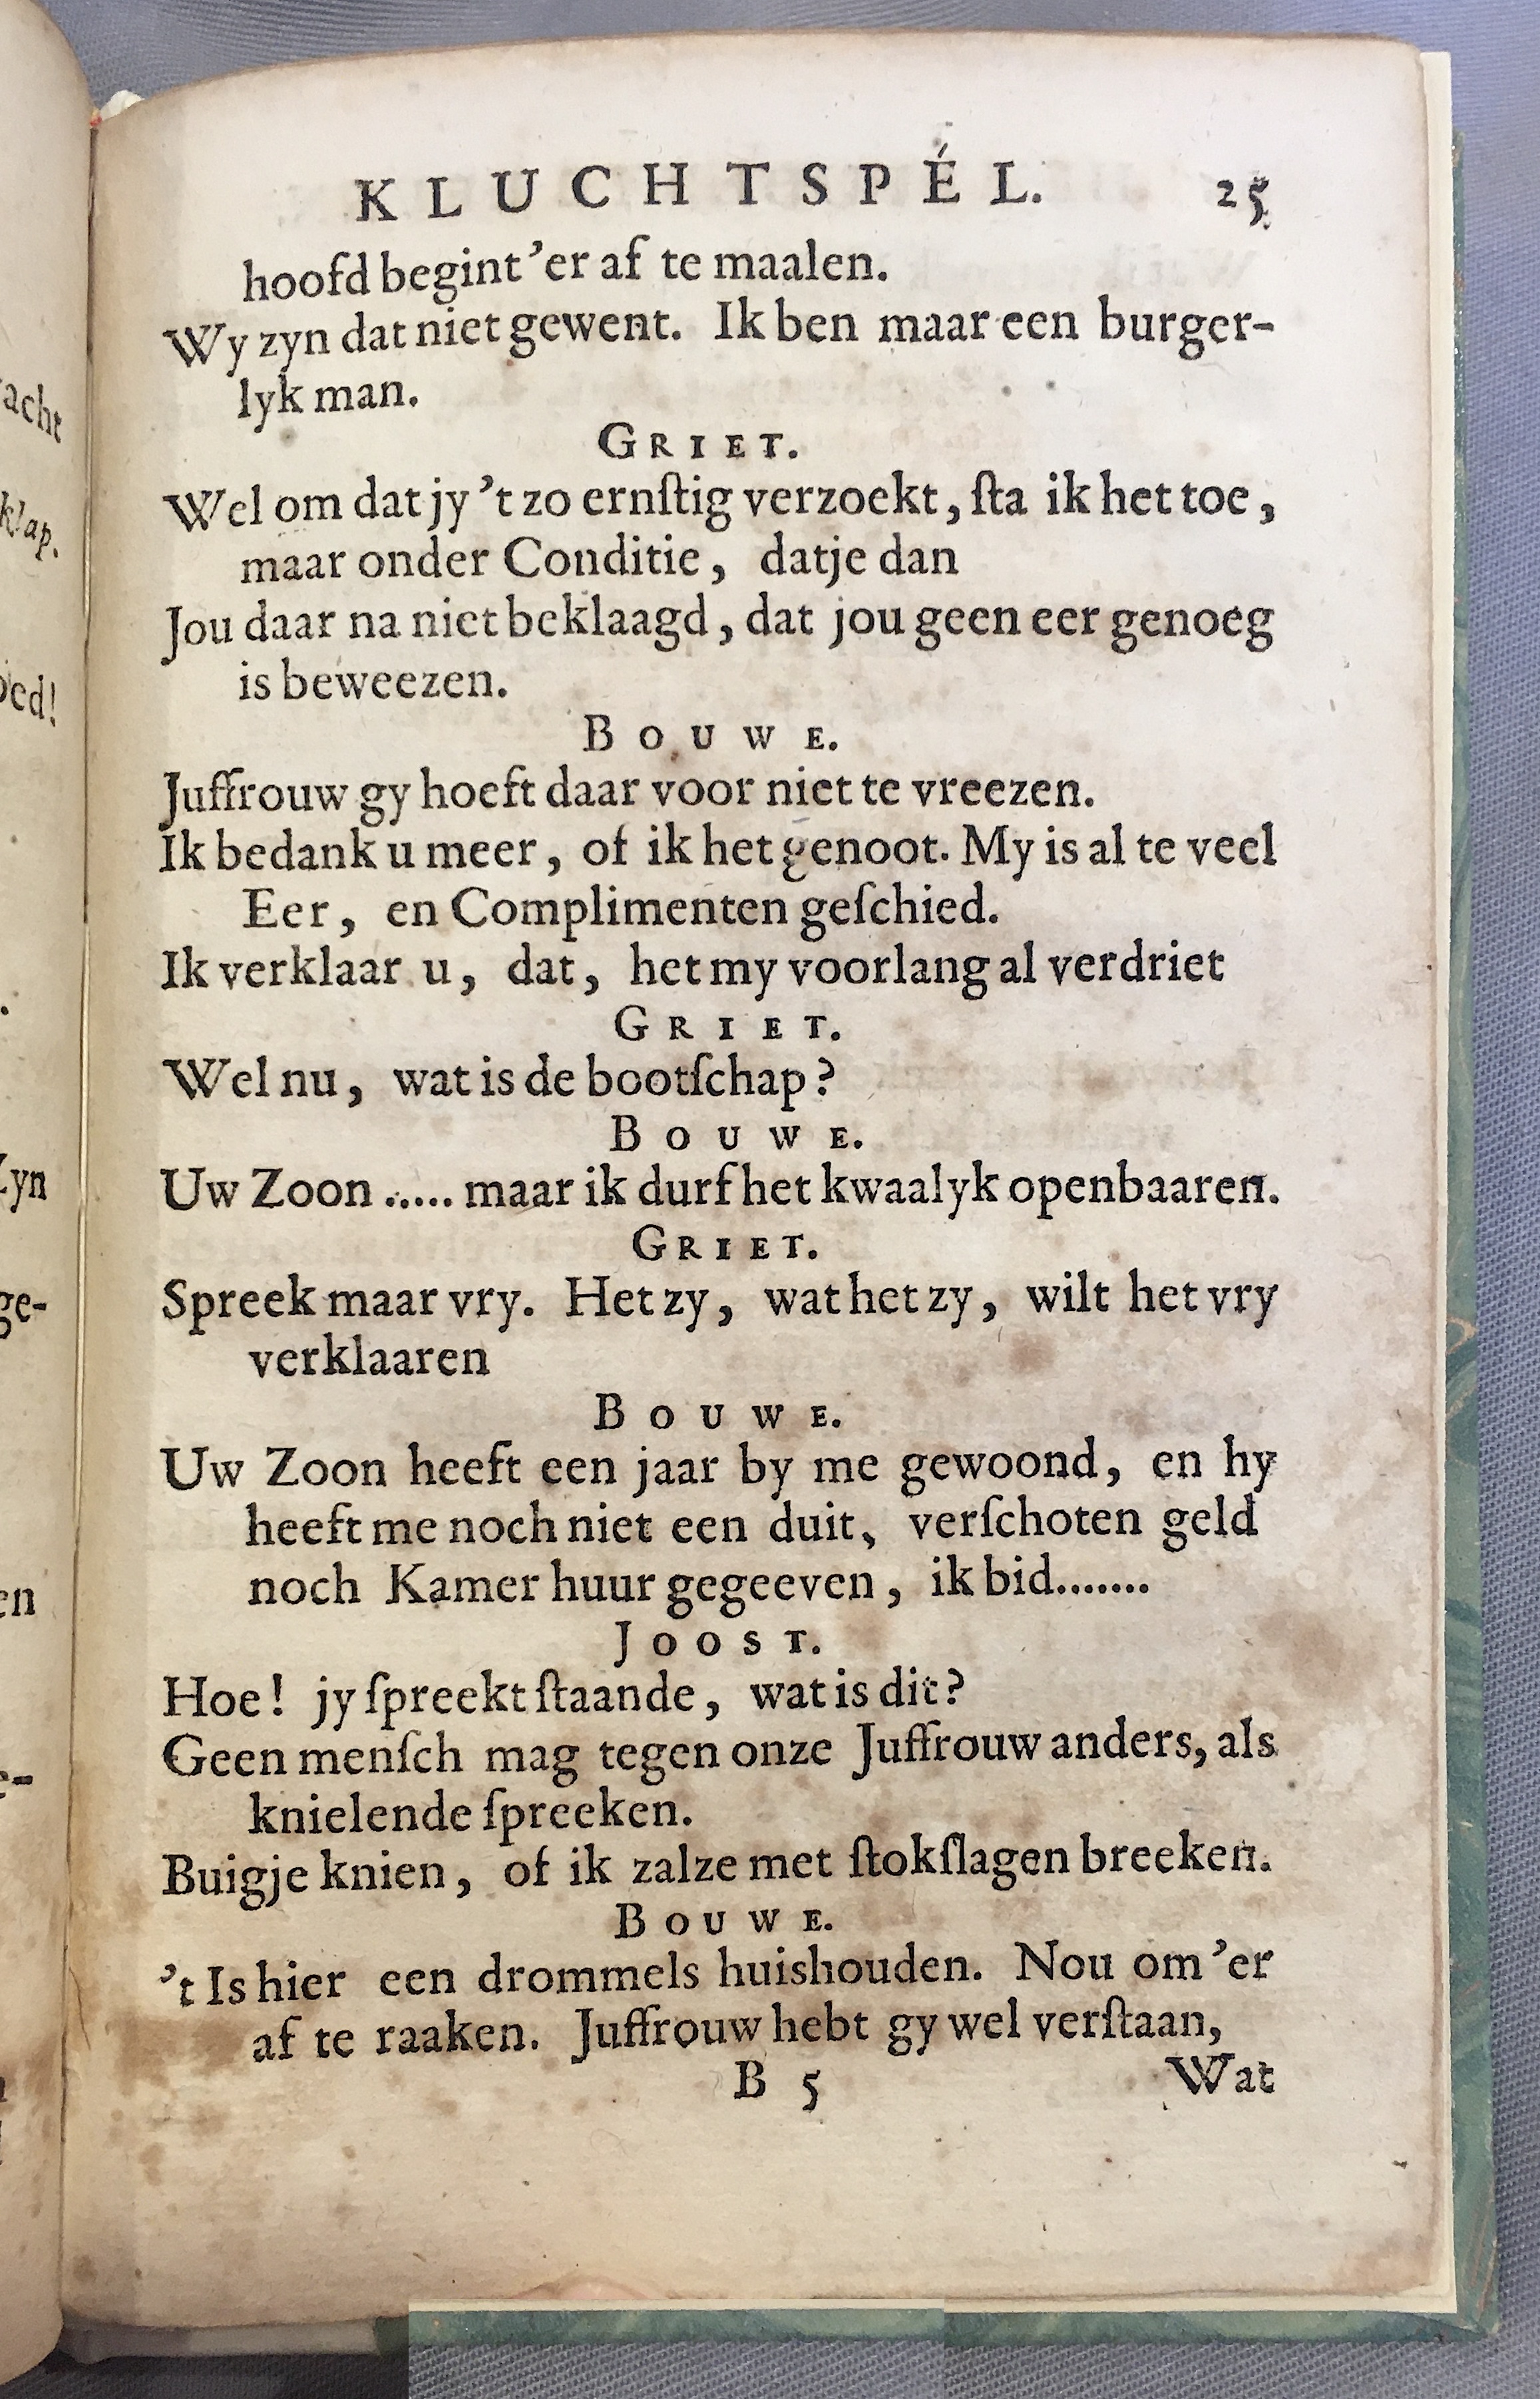 KLUCHTSPÉL. 25
hoofd begint 'er af te maalen.
Wy zyn dat niet gewent. Ik ben maar een burger-
lyk man.
GRIET.
Wel om dat jy 't zo ernſtig verzoekt, ſta ik het toe,
maar onder Conditie, datje dan
Jou daar na niet beklaagd, dat jou geen eer genoeg
is beweezen.
BOUWE.
Juffrouw gy hoeft daar voor niet te vreezen.
Ik bedank u meer, of ik het genoot. My is al te veel
Eer, en Complimenten geſchied.
Ik verklaar u, dat, het my voorlang al verdriet
GRIET.
Wel nu, wat is de bootſchap?
BOUWE.
Uw Zoon ..... maar ik durf het kwaalyk openbaaren.
GRIET.
Spreek maar vry. Het zy, wat het zy, wilt het vry
verklaaren
BOUWE.
Uw Zoon heeft een jaar by me gewoond, en hy
heeft me noch niet een duit, verſchoten geld
noch Kamer huur gegeeven, ik bid.......
JOOST.
Hoe! jy ſpreekt ſtaande, wat is dit?
Geen menſch mag tegen onze Juffrouw anders, als
knielende ſpreeken.
Buigje knien, of ik zalze met ſtokſlagen breeken.
BOUWE.
't Is hier een drommels huishouden. Nou om 'er
af te raaken. Juffrouw hebt gy wel verſtaan,
B 5 Wat